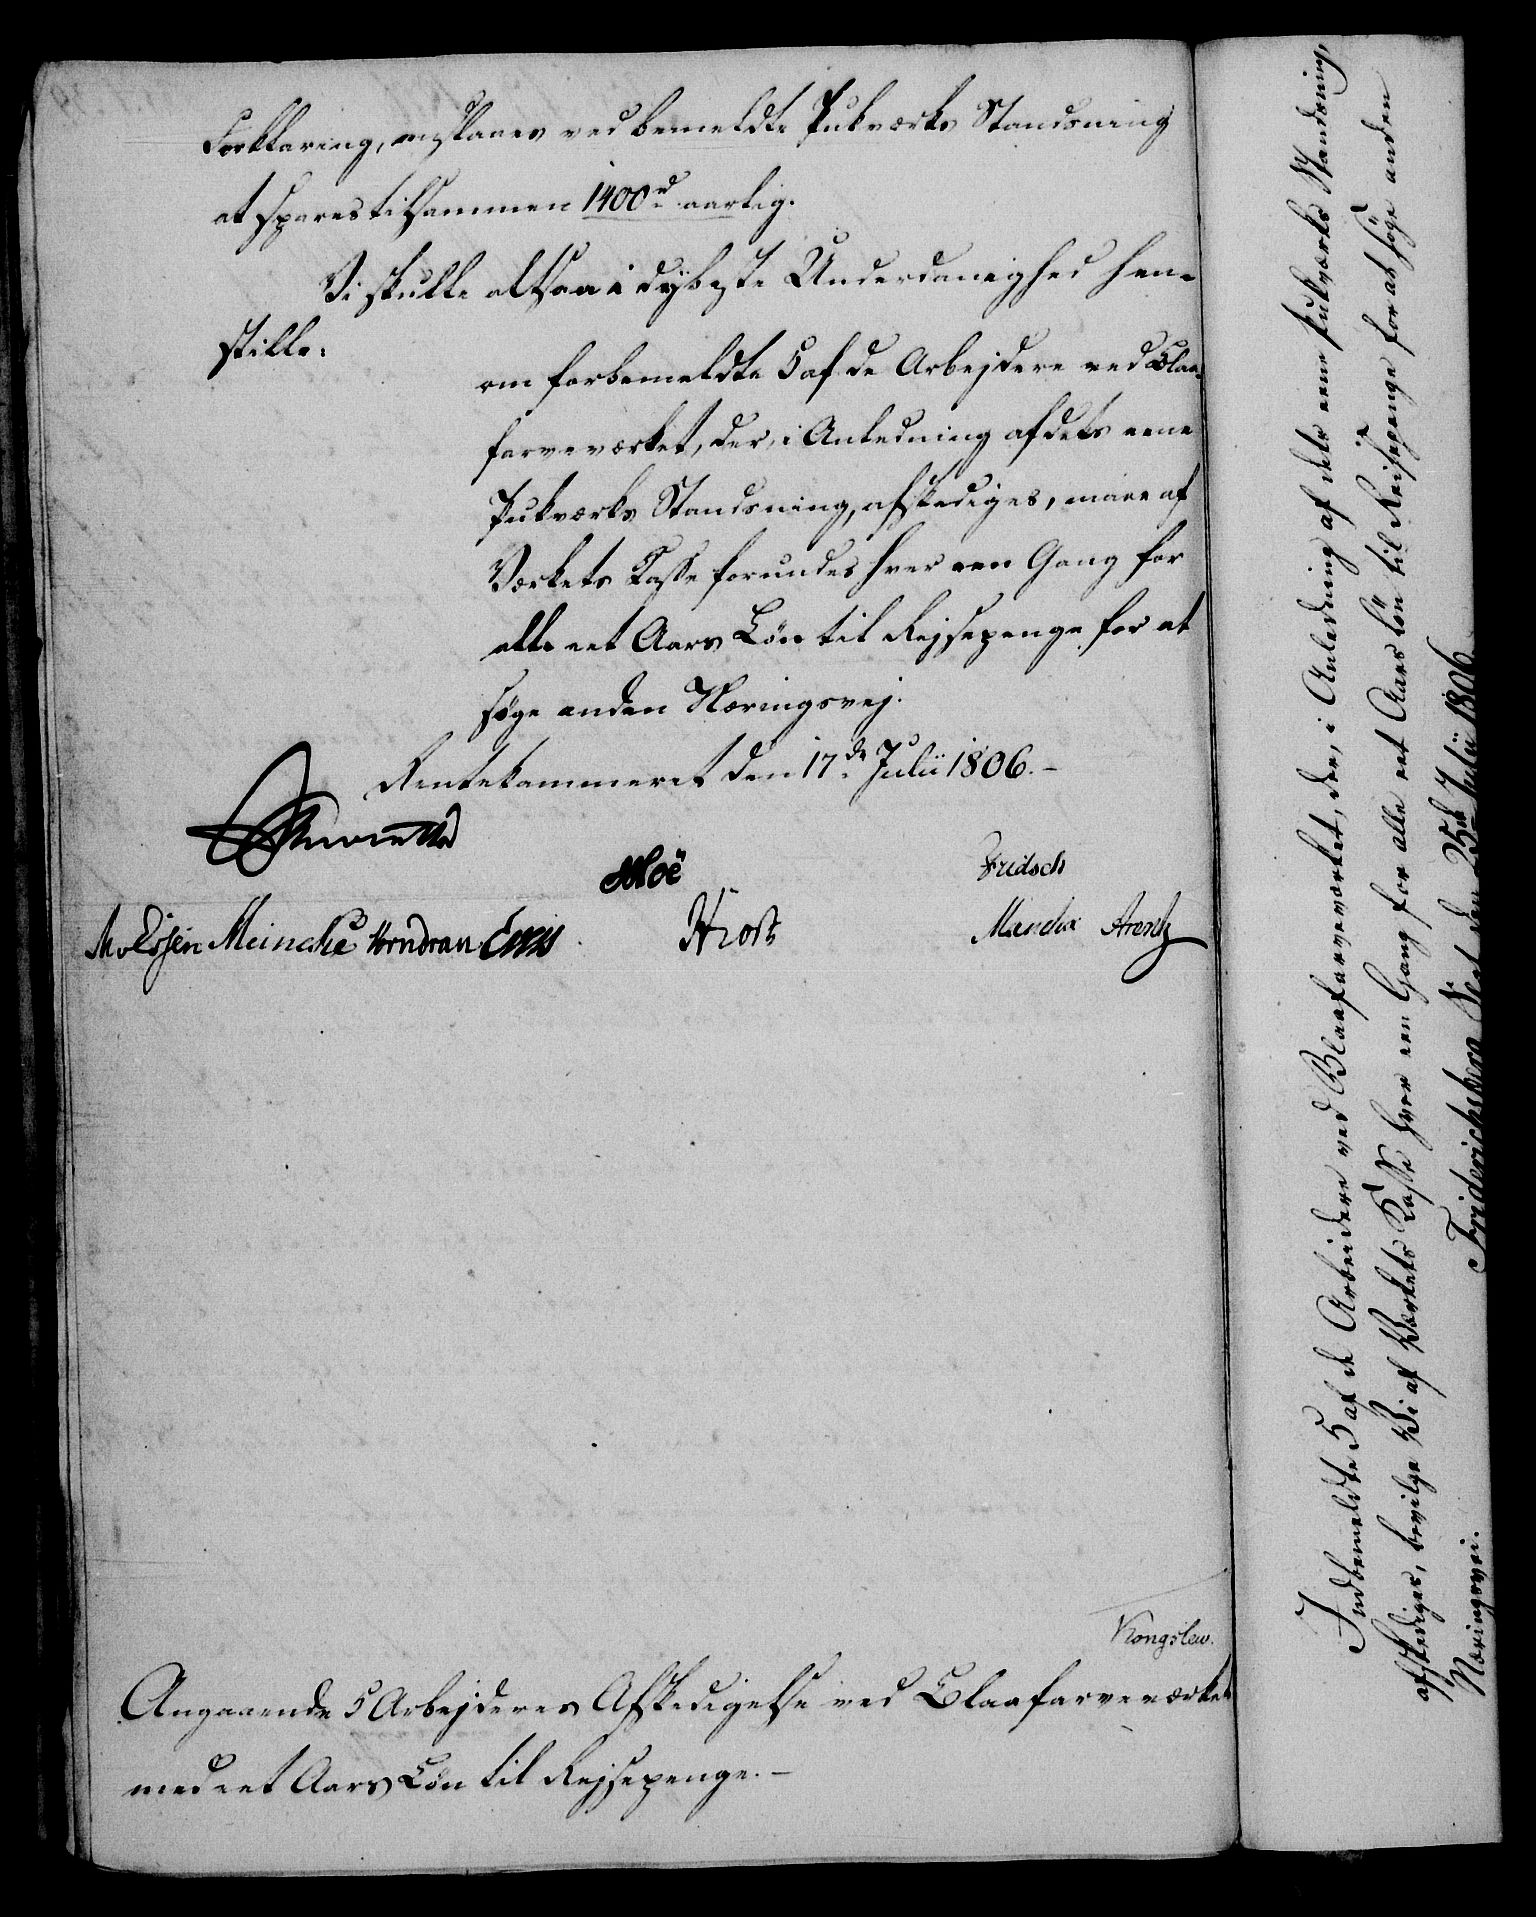 Forklaring, ved bemeldte Pukværks Standsning
at spares tilsammen 1400 rd aarlig.
Vi skulle altsaa i dybeste Underdanighed hen-
stille:
om forbemeldte 5 af de Arbejdere ved Blaa-
farveværket, der, i Anledning af dets eene
Pukværks Standsning, afskediges, maae af
Værkets Casse forundes hver een Gang for
alle eet Aars Løn til Rejsepenge for at
søge anden Næringsvej.
Rentekammeret den 17de Julii 1806.-
Moë
Fridsch
MvEssen Meincke Horndran
Hiort
Arentz
Kongslew.
Angaaende 5 Arbejderes Afskedigelse ved Blaafarveværket
med eet Aars Løn til Rejsepenge.-
Indbemeldte 5 af de Arbeidere ved Blaafarveværket, der, i Anledning af dets eene Pukværks Standsning,
afskediges, bevilge Vi af Værkets Kasse hver een Gang for alle eet Aars Løn til Reisepenge for at søge anden
Næringsvei.
Friderichsberg Slot den 25de Julii 1806.